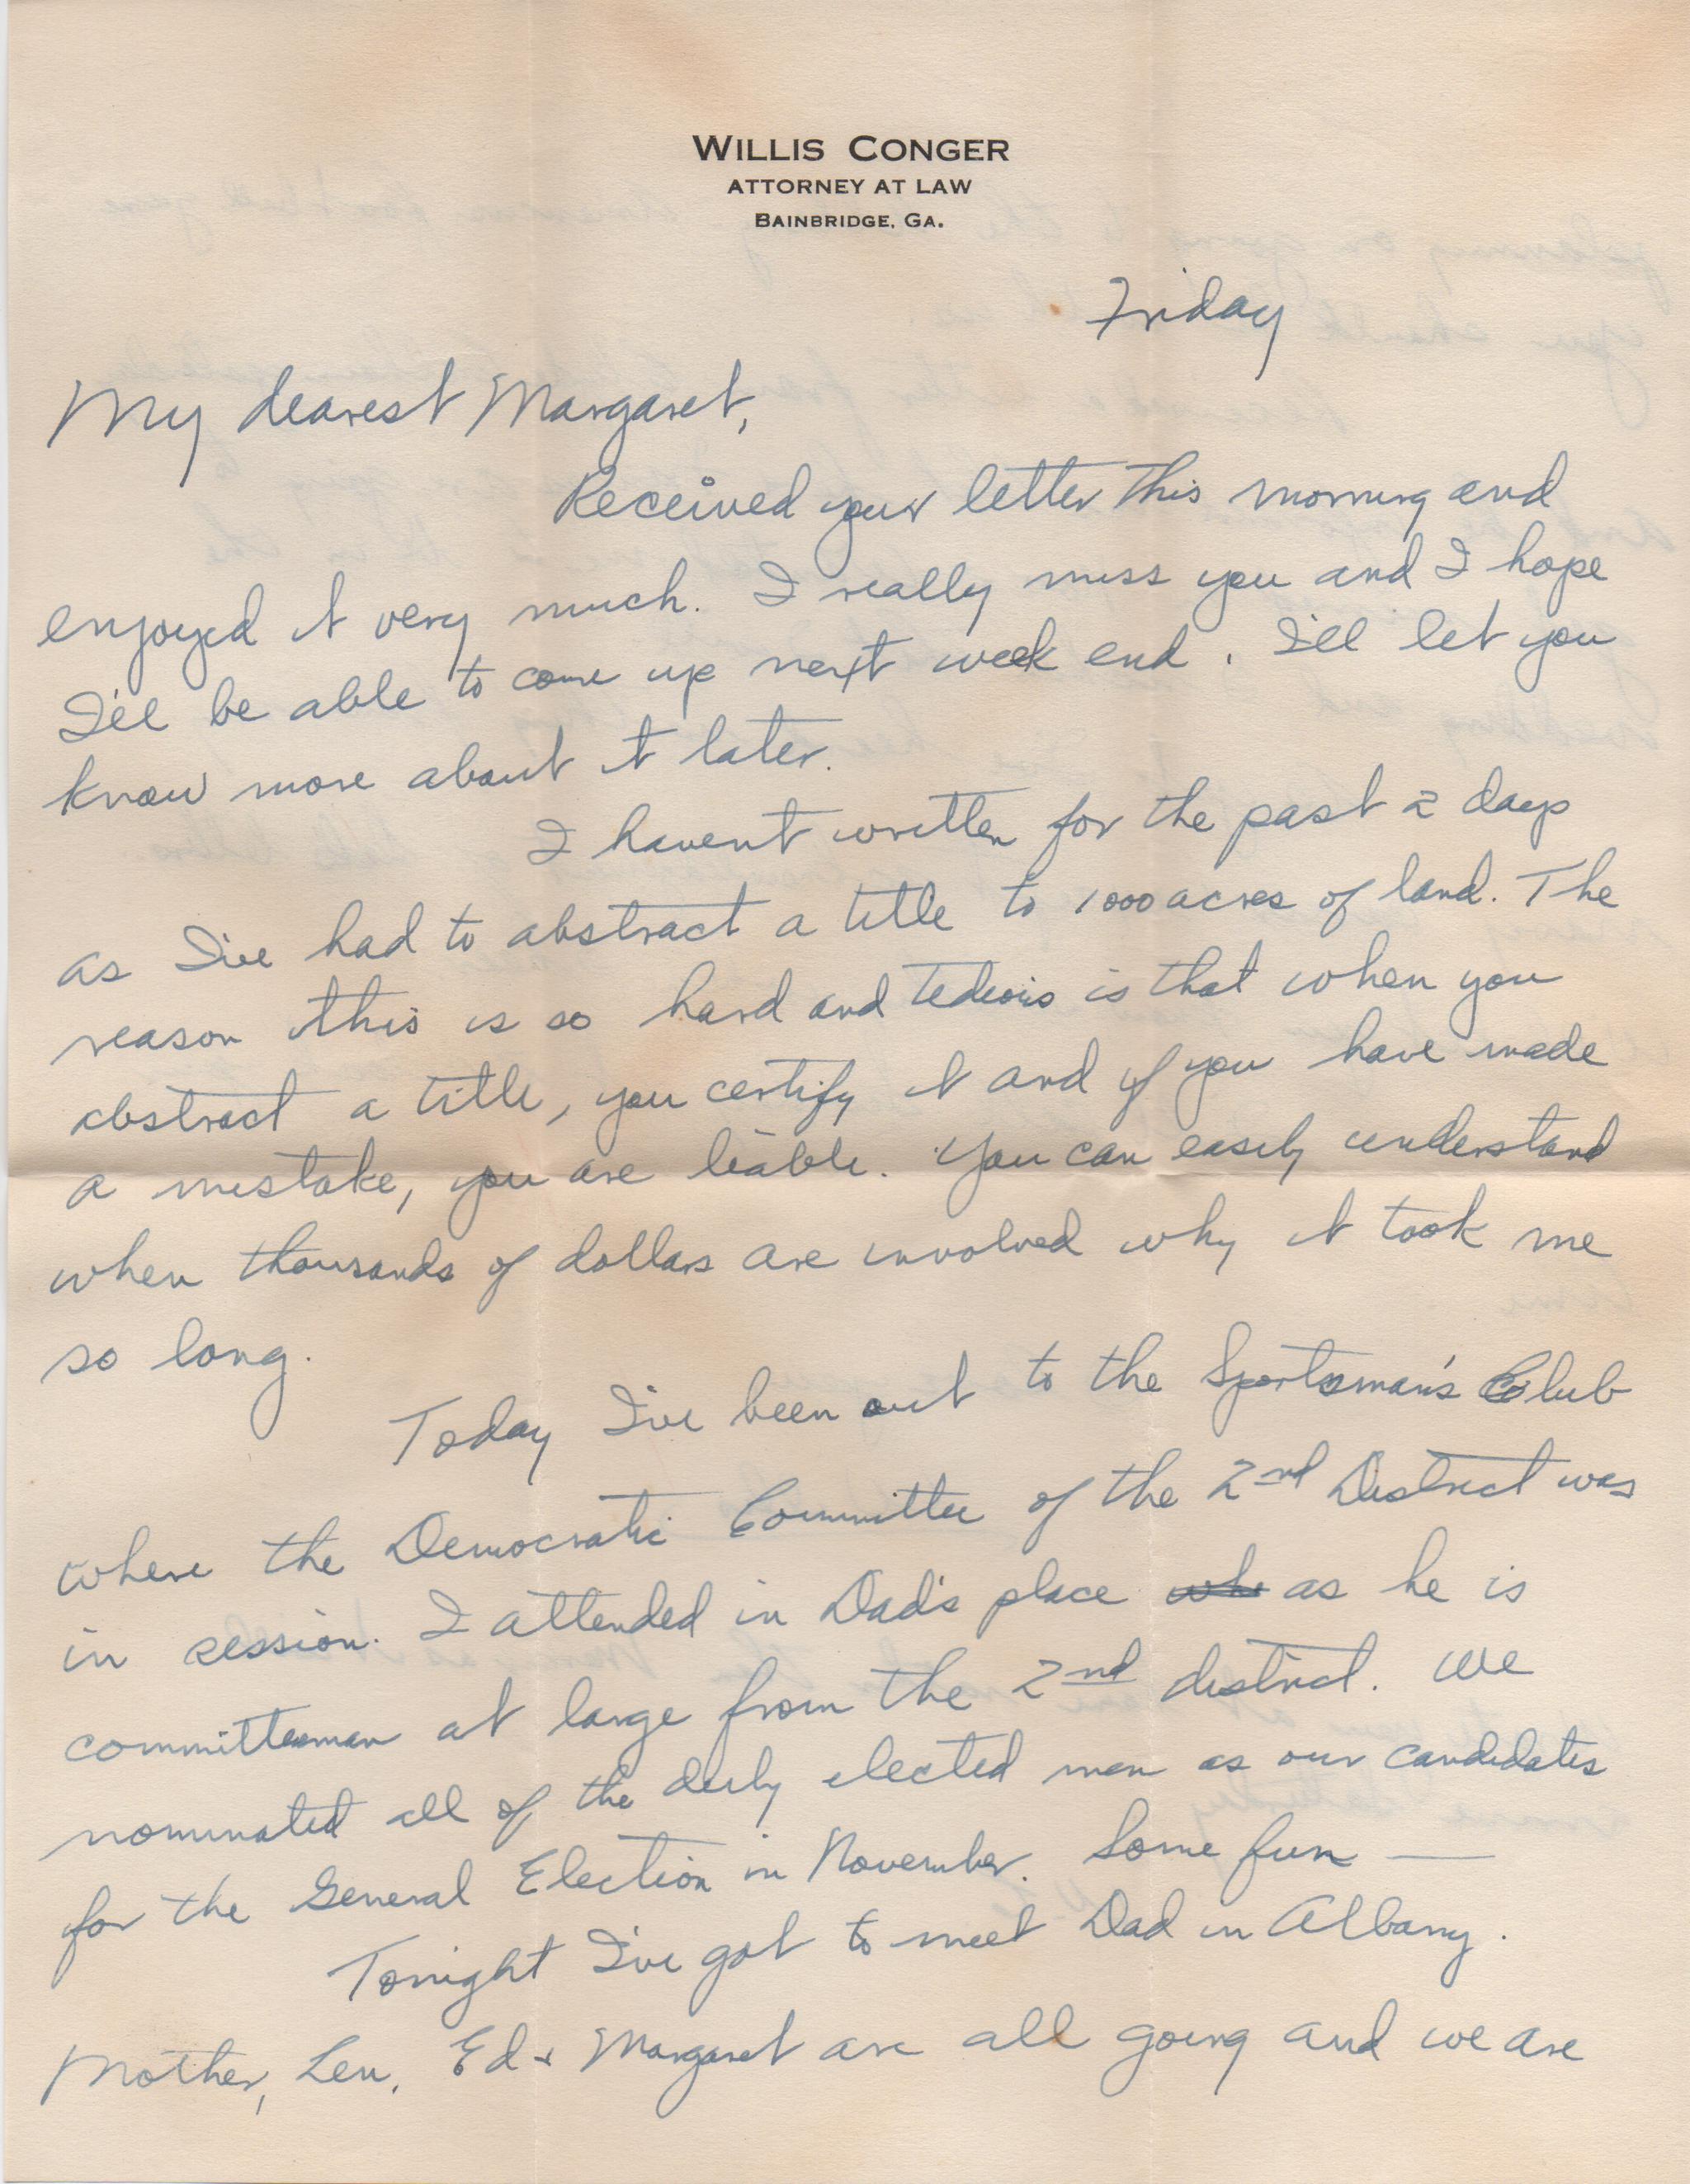 WILLIS CONGER
ATTORNEY AT LAW
BAINBRIDGE, GA.
Friday
My dearest Margaret,
Received your letter this morning and
enjoyed it very much. I really miss you and I hope
I'll be able to come up next week end. I'll let you
know more about it later.
I havent written for the past 2 days
as I've had to abstract a title to 1000 acres of land. The
reason this is so hard and tedious is that when you
abstract a title, you certify it and if you have made
a mistake, you are liable. You can easily understand
when thousands of dollars are involved why it took me
so long.
Today I've been out to the Sportsman's Club
where the Democratic Committee of the 2nd District was
in session. I attended in Dad's place as he is
committeeman at large from the 2nd district. We
nominated all of the duly elected men as our candidates
for the General Election in November. Some fun —
Tonight I've got to meet Dad in Albany.
Mother, Leu, Ed & Margaret are all going and we are